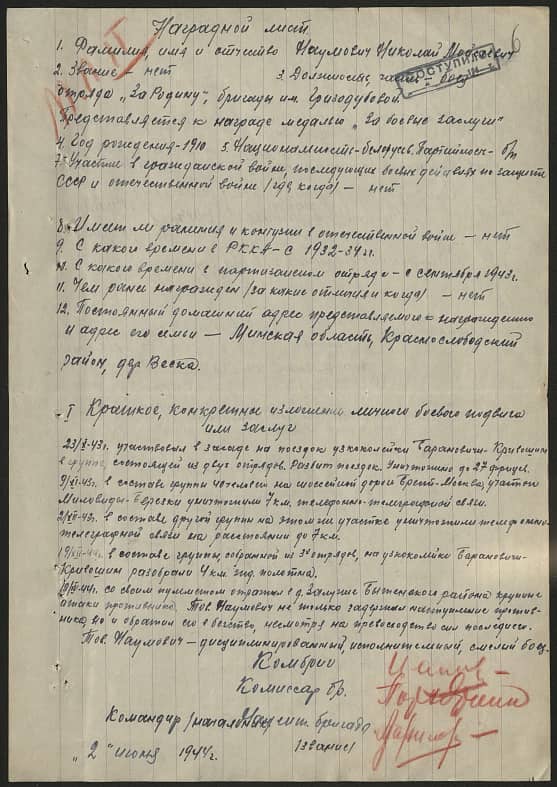 Наградной лист
6
1. Фамилия, имя и отчество Наумович Николай
ПОСТУПИЛО
2. Звание – нет 3. Должность, часть боец
отряда "За Родину", бригады им. Гризодубовой.
Представляется к награде медалью "За боевые заслуги"
4. Год рождения - 1910 5. Национальность - белорус 6. Партийность - б/п
7. Участие в гражданской войне, последующих боевых действиях по защите
СССР и отечественной войне /где, когда/ – нет
8. Имеет ли ранения и контузии в отечественной войне – нет
9. С какого времени в РККА – с 1932-34гг.
10. С какого времени в партизанском отряде – с сентября 1943г.
11. Чем ранее награжден /за какие отличия и когда/ – нет
12. Постоянный домашний адрес представляемого к награждению
и адрес его семьи – Минская область, Краснослободский
район, дер. Веска.
I Краткое, конкретное изложение личного боевого подвига
или заслуг
участвовал в засаде на поездок узкоколейки Барановичи - Кривошин
в группе, состоящей из двух отрядов. Разбит поездок. Уничтожено до 27 фрицев.
в составе группы на шоссейной дороге Брест-Москва, участок
Миловиды - Березки уничтожили 7 км. телефонно-телеграфной связи.
в составе другой группы на этом же участке уничтожили телефонно-
телеграфной связи на расстоянии до 7 км.
в составе группы, собранной из 3х отрядов, на узкоколейке Барановичи-
Кривошин разобрали 4 км. жд. полотна.
со своим пулеметом отражал в д. Залужье Бытенского района крупные
атаки противника. Тов. Наумович не только задержал наступление против-
ника, но и обратил его в бегство, несмотря на превосходство сил последнего.
Тов. Наумович – дисциплинированный, исполнительный, смелый боец.
Комбриг
Комиссар бр.
Командир /начальник бригады
/звание/
"2" июня 1944г.